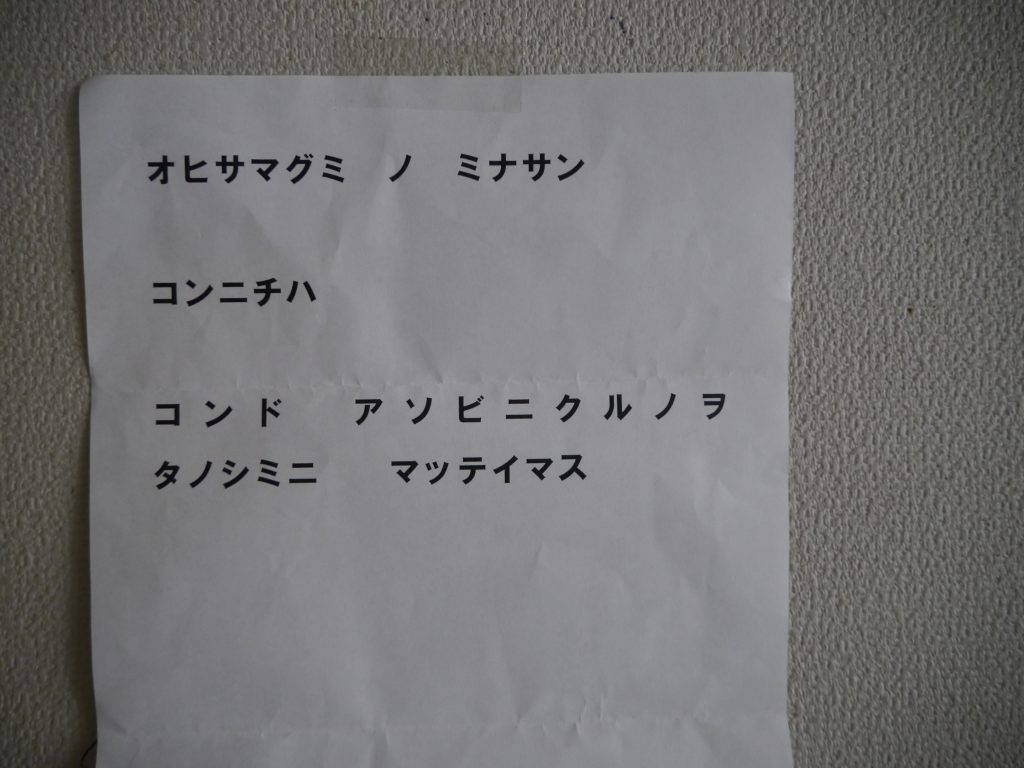 オヒサマグミ　ノ　ミナサン
コンニチハ
コンド　アソビニクルノヲ
タノシミニ　マッテイマス